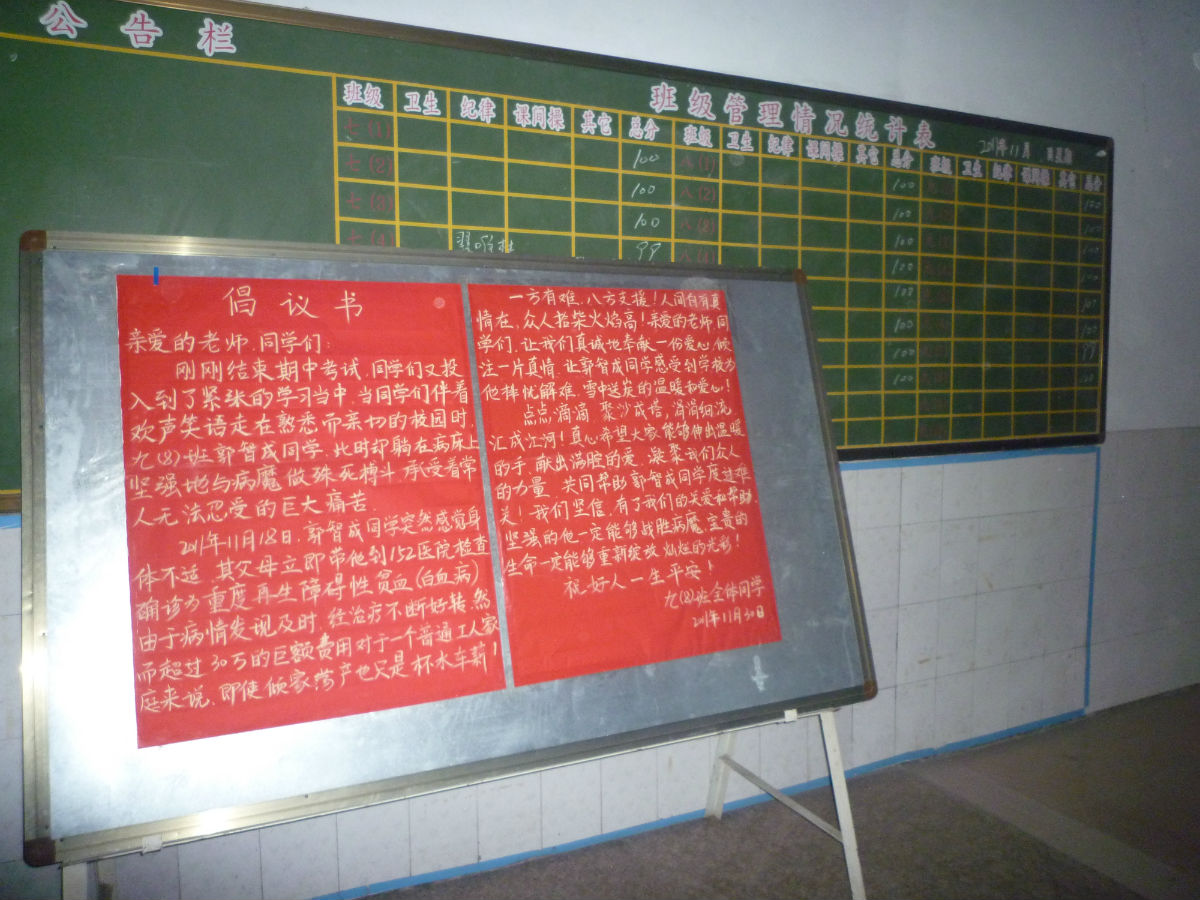 公告栏
班级管理情况统计表
2011年11月
班级 卫生 纪律 课间操 其它 总分 班级 卫生 纪律 课间操 其它 总分 班级 卫生 纪律 课间操 其它 总分
七(1) 100 八(1) 100 100
七(2) 100 八(2) 100
七(3) 100 八(3) 100 100
七(4) 99 八(4) 100 100
倡议书
亲爱的老师、同学们:
刚刚结束期中考试,同学们又投
入到了紧张的学习当中,当同学们伴着
欢声笑语走在熟悉而亲切的校园时,
九(8)班郭智成同学,此时却躺在病床上
坚强地与病魔做殊死搏斗,承受着常
人无法忍受的巨大痛苦.
2011年11月18日,郭智成同学突然感觉身
体不适,其父母立即带他到152医院检查
确诊为重度再生障碍性贫血(白血病)
由于病情发现及时,经治疗不断好转,然
而超过30万的巨额费用对于一个普通工人家
庭来说,即使倾家荡产也只是杯水车薪!
一方有难,八方支援!人间自有真
情在,众人拾柴火焰高!亲爱的老师、同
学们,让我们真诚地奉献一份爱心,倾
注一片真情,让郭智成同学感受到学校为
他排忧解难,雪中送炭的温暖和爱心!
点点滴滴,聚沙成塔,涓涓细流,
汇成江河!真心希望大家能够伸出温暖
的手,献出满腔的爱,凝聚我们众人
的力量,共同帮助郭智成同学度过难
关!我们坚信,有了我们的关爱和帮助,
坚强的他一定能够战胜病魔,宝贵的
生命一定能够重新绽放灿烂的光彩!
祝:好人一生平安!
九(8)班全体同学
2011年11月30日